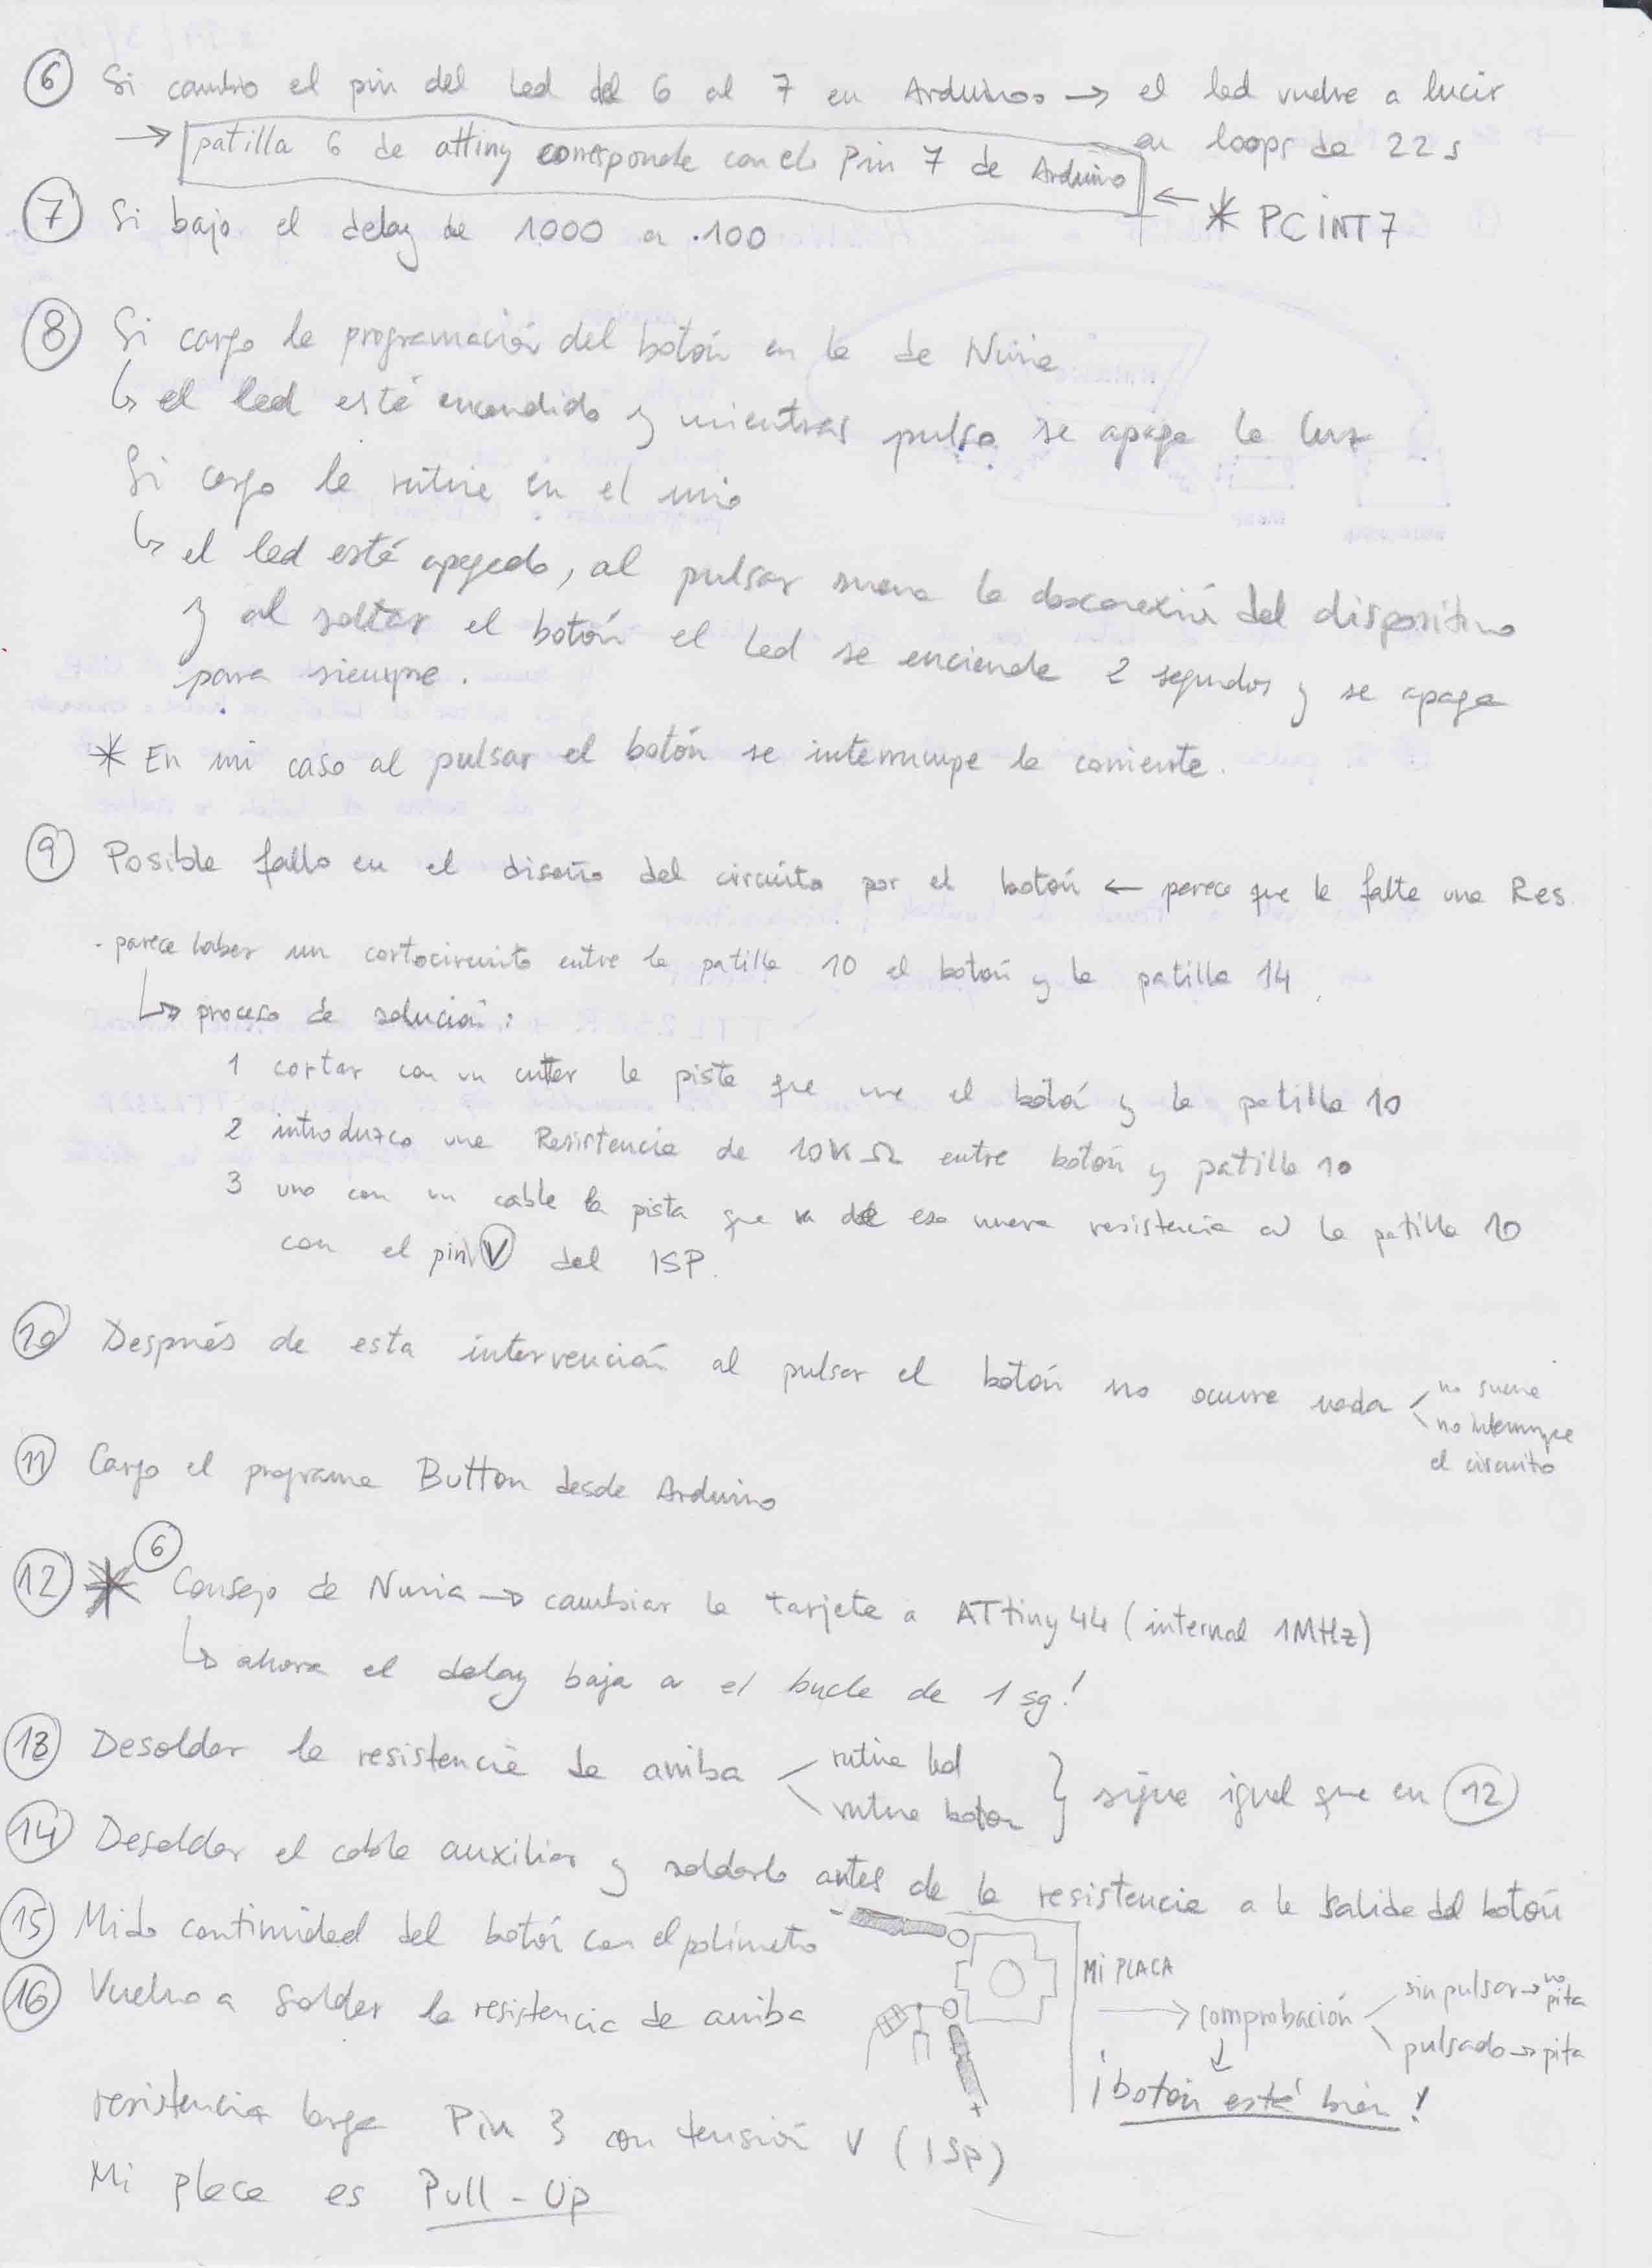 ⑥ Si cambio el pin del Led del 6 al 7 en Arduinos → el led vuelve a lucir
en loops de 22 s
→ patilla 6 de attiny corresponde con el Pin 7 de Arduino ← * PCiNT7
⑦ Si bajo el delay de 1000 a 100
⑧ Si cargo la programación del botón en la de Nuria
↳ el led está encendido y mientras pulso se apaga la luz
Si cargo la rutina en el mio
↳ el led está apagado, al pulsar suena la desconexión del dispositivo
y al soltar el botón el Led se enciende 2 segundos y se apaga
para siempre.
* En mi caso al pulsar el botón se interrumpe la corriente.
⑨ Posible fallo en el diseño del circuito por el botón ← parece que le falta una Res
- parece haber un cortocircuito entre la patilla 10 el botón y la patilla 14
↳ proceso de solución:
1 cortar con un cutter la pista que une el botón y la patilla 10
2 introduzco una Resistencia de 10K Ω entre botón y patilla 10
3 uno con un cable la pista que va de esa nueva resistencia a la patilla 10
con el pin Ⓥ del ISP.
⑩ Después de esta intervención al pulsar el botón no ocurre nada
no suena
no interrumpe
el circuito
⑪ Cargo el programa Button desde Arduino
⑫ * ⑥ Consejo de Nuria → cambiar la tarjeta a ATtiny44 (internal 1MHz)
↳ ahora el delay baja a el bucle de 1 sg!
⑬ Desoldar la resistencia de arriba
rutina led
rutina boton
} sigue igual que en ⑫
⑭ Desoldar el cable auxiliar y soldarlo antes de la resistencia a la salida del botón
⑮ Mido continuidad del botón con el polímetro
⑯ Vuelvo a soldar la resistencia de arriba
-
+
Mi PLACA
→ comprobación
sin pulsar → no pita
pulsado → pita
↓
¡botón está bien!
resistencia larga Pin 3 con tensión V (ISP)
Mi placa es Pull-Up